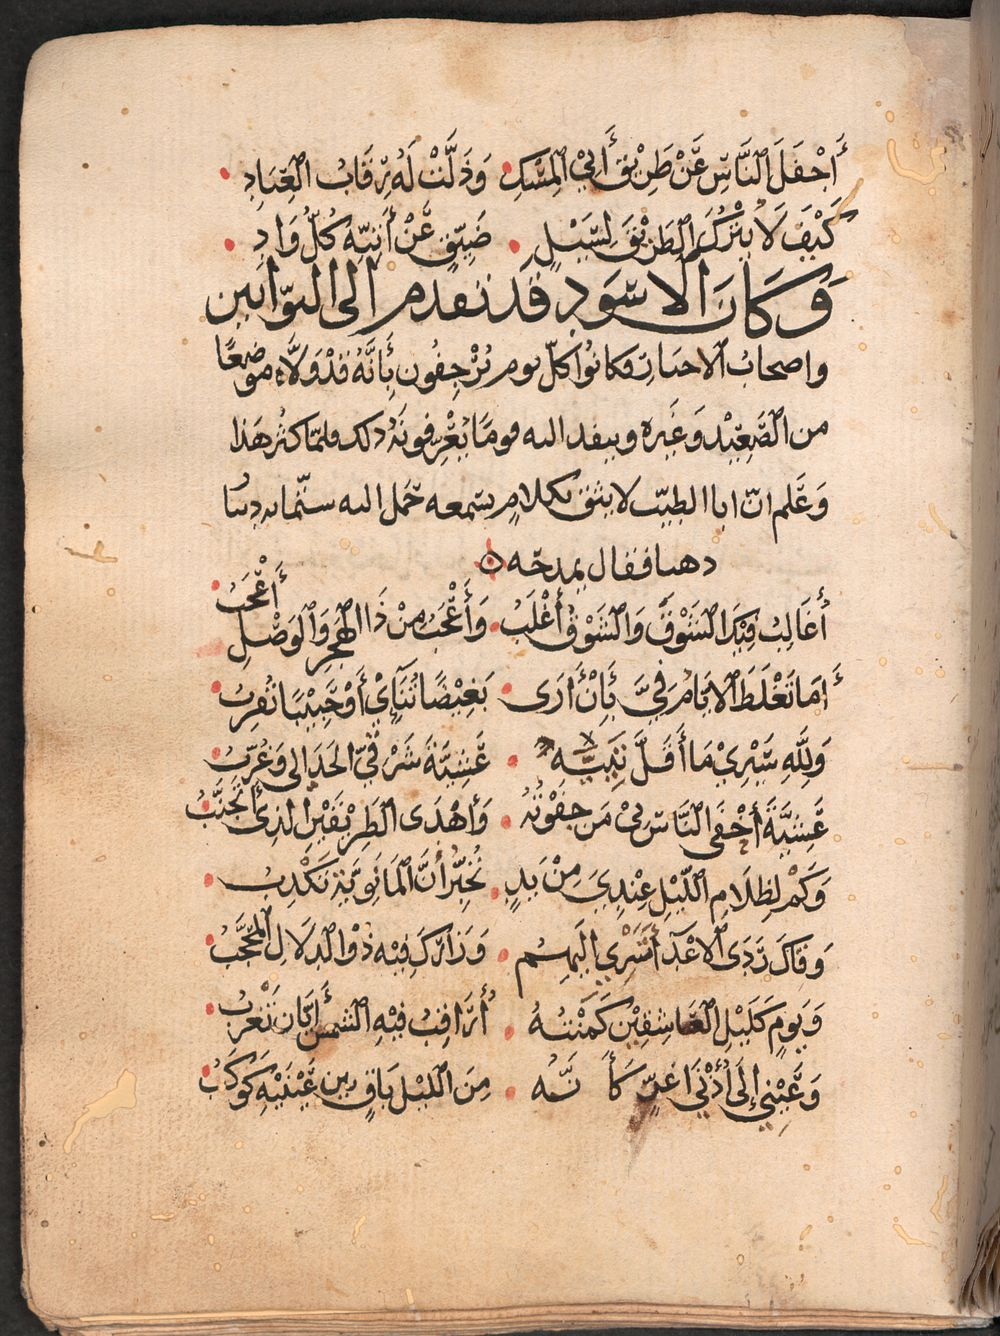 أَجْفَلَ ٱلنَّاسُ عَنْ طَرِيْقِ أَبِيْ ٱلْمِسْكِ وَذَلَّتْ لَهُ رِقَابُ ٱلْعِبَادِ
كَيْفَ لَا يُتْرَكُ ٱلطَّرِيْقُ لِسَيْلٍ ضَيِّقٍ عَنْ أَتِيِّهِ كُلُّ وَادِ
وَكَانَ الاسْوَد قد تقدم الى البوّابين
واصحاب الاخبار فكانوا كلّ يوم يُرْجِفُون بِأَنَّهُ قَدْ وَلَّاهُ موضِعًا
من ٱلصَّعِيْد وَغَيره وينفد اليه قومًا يُعَرِّفُونَهُ ذلك فلمّا كثُر هَذَا
وَعَلم انّ ابا الطيّب لا يثق بكلامٍ سمعه حمل اليه ستّمايه دينار
ذهبا فقال يمدحه
أُغَالِبُ فِيْكَ ٱلشَّوْقَ وَٱلشَّوْقُ أَغْلَبُ وَأَعْجَبُ مِنْ ذَا ٱلْهَجْرِ وَٱلْوَصْلُ أَعْجَبُ
أَمَا تَغْلَطُ ٱلْايَّامُ فِيَّ بِأَنْ أَرَى بَغِيْضًا تُنَآئِيْ أَوْ حَبِيْبًا تُقَرِّبُ
وَلِلّٰهِ سَيْرِيْ مَا أَقَلَّ تَئِيَّةً عَشِيَّةَ شَرْقِيّ الحَدَالى وَغُرَّبُ
عَشِيَّةَ أَحْفَى النَّاسِ بِيْ مَن جَفَوْتُهُ وَأَهْدَى ٱلطَّرِيْقَيْنِ الذِي أَتَجَنَّبُ
وَكَمْ لِظَلَامِ اللَّيْلِ عِنْدِيَ مِنْ يَدٍ تُخَبِّرُ أَنَّ ٱلْمَانَوِيَّةَ تَكْذِبُ
وَقَاكَ رَدَى الاعْدَآءِ أَسْرِي الَيْهِمُ وَزَارَكَ فِيْهِ ذُوْ الدَلَالِ ٱلْمُحَجَّبُ
وَيَومٍ كَلَيْلِ الْعَاشِقِيْنَ كَمَنْتُهُ أُرَاقِبُ فِيْهِ الشمسَ أَيَّانَ تَغْرُبُ
وَعَيْنِيْ إِلَى أُذْنَي اغرٍّ كَأَنَّه مِنَ اللَّيْلِ بَاقٍ بين عَيْنَيْهِ كَوْكَبُ